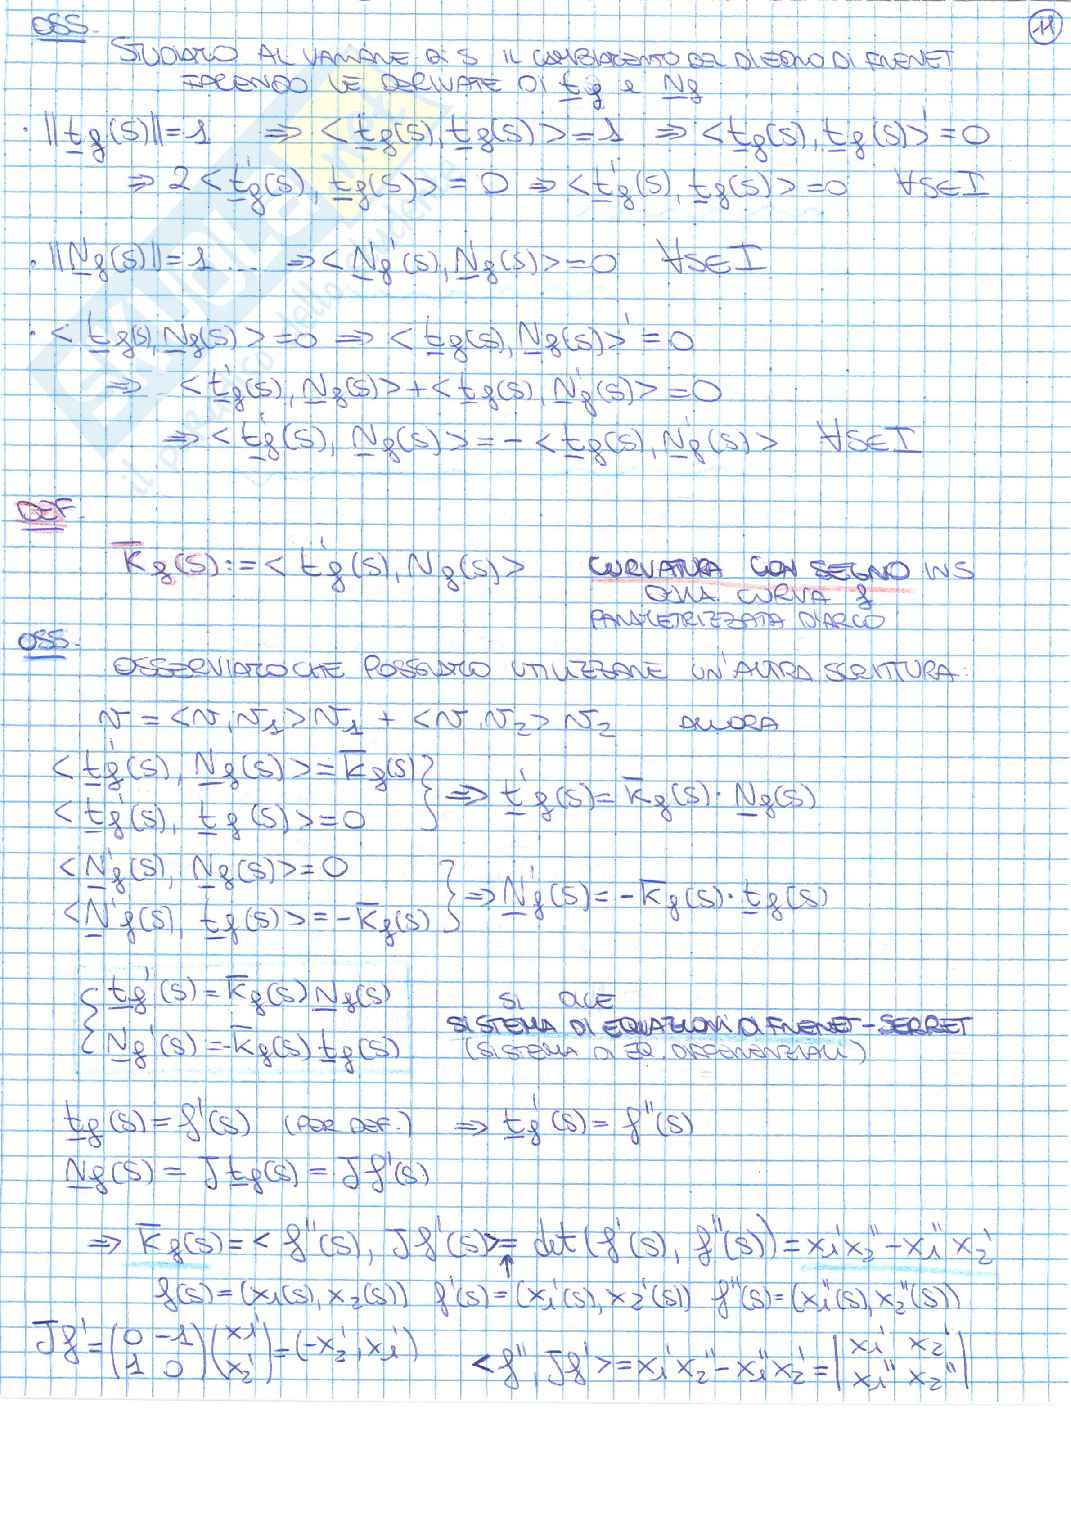 OSS. 11
STUDIAMO AL VARIARE DI S IL CAMBIAMENTO DEL DIEDRO DI FRENET
FACENDO LE DERIVATE DI t_f e N_f
· ||t_f(s)|| = 1 ⇒ <t_f(s), t_f(s)> = 1 ⇒ <t_f(s), t_f(s)>' = 0
⇒ 2<t_f'(s), t_f(s)> = 0 ⇒ <t_f'(s), t_f(s)> = 0 ∀s∈I
· ||N_f(s)|| = 1 ... ⇒ <N_f'(s), N_f(s)> = 0 ∀s∈I
· <t_f(s), N_f(s)> = 0 ⇒ <t_f(s), N_f(s)>' = 0
⇒ <t_f'(s), N_f(s)> + <t_f(s), N_f'(s)> = 0
⇒ <t_f'(s), N_f(s)> = - <t_f(s), N_f'(s)> ∀s∈I
DEF.
K̅_f(s) := <t_f'(s), N_f(s)> CURVATURA CON SEGNO IN S
DELLA CURVA f
PARAMETRIZZATA D'ARCO
OSS.
OSSERVIAMO CHE POSSIAMO UTILIZZARE UN'ALTRA SCRITTURA:
v = <v, v_1> v_1 + <v, v_2> v_2 ALLORA
<t_f'(s), N_f(s)> = K̅_f(s)
<t_f'(s), t_f(s)> = 0 } ⇒ t_f'(s) = K̅_f(s) · N_f(s)
<N_f'(s), N_f(s)> = 0
<N_f'(s), t_f(s)> = -K̅_f(s) } ⇒ N_f'(s) = -K̅_f(s) · t_f(s)
{ t_f'(s) = K̅_f(s) N_f(s) SI DICE
{ N_f'(s) = -K̅_f(s) t_f(s) SISTEMA DI EQUAZIONI DI FRENET-SERRET
(SISTEMA DI EQ. DIFFERENZIALI)
t_f(s) = f'(s) (PER DEF.) ⇒ t_f'(s) = f''(s)
N_f(s) = J t_f(s) = J f'(s)
⇒ K̅_f(s) = <f''(s), J f'(s)> = det(f'(s), f''(s)) = x_1' x_2'' - x_1'' x_2'
↑
f(s) = (x_1(s), x_2(s)) f'(s) = (x_1'(s), x_2'(s)) f''(s) = (x_1''(s), x_2''(s))
J f' = (0 -1) (x_1') = (-x_2', x_1')
(1 0) (x_2') <f'', J f'> = x_1' x_2'' - x_1'' x_2' = |x_1' x_2'|
|x_1'' x_2''|